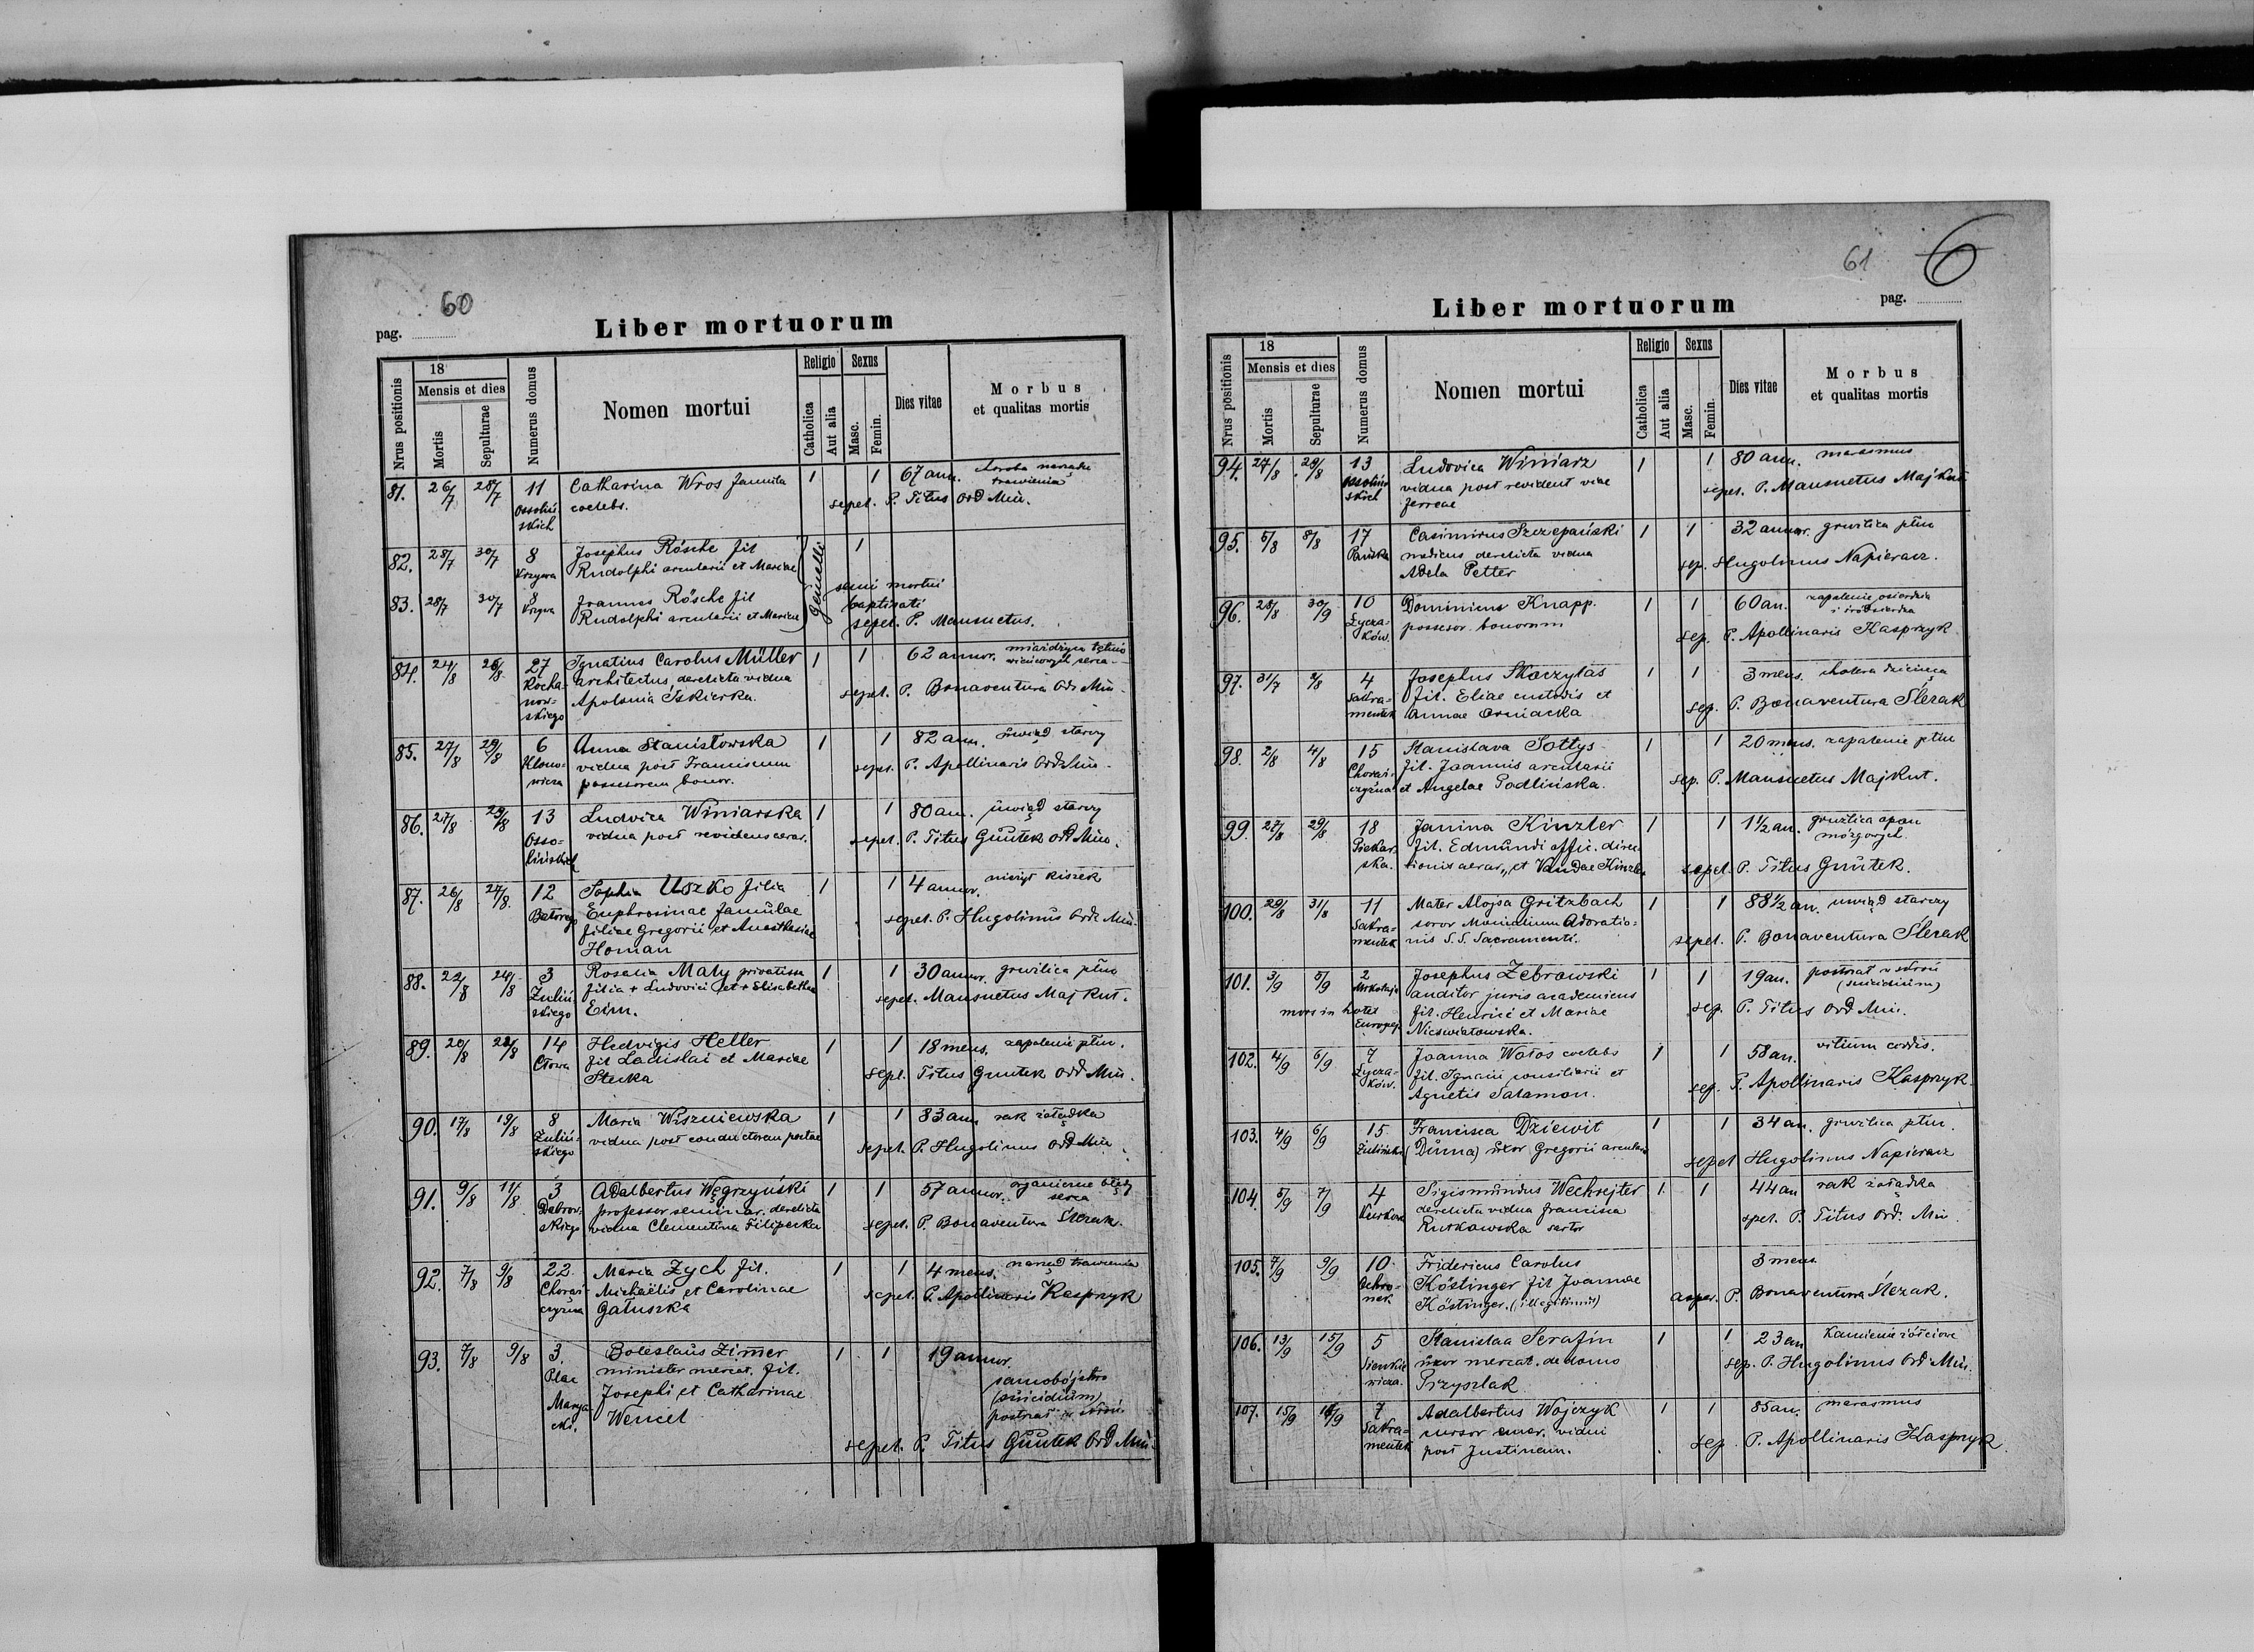 60
pag.
Liber mortuorum
Nrus positionis
18
Mensis et dies
Mortis
Sepulturae
Numerus domus
Nomen mortui
Religio
Catholica
Aut alia
Sexus
Masc.
Femin.
Dies vitae
Morbus
et qualitas mortis
81. 26/7 28/7 11 Catharina Wros famula 1 1 67 ann. choroba narządu
Ossoliń coelebs. trawienia
skich sepel. P. Titus Ord Min.
82. 28/7 30/7 8 Josephus Rösche fil 1
Krzywa Rudolphi arcularii et Mariae
Gemelli
83. 28/7 30/7 8 Joannes Rösche fil semi mortui
Krzywa Rudolphi arcularii et Mariae baptisati
sepel. P. Mansuetus.
84. 24/8 26/8 27 Ignatius Carolus Müller 1 1 62 annor. miażdżyca tętnic
Kocha- architectus, derelicta vidua wieńcowych serca
now- Apolonia Iskierka. sepel. P. Bonaventura Ord Min.
skiego
85. 27/8 29/8 6 Anna Stanisławska 1 1 82 ann. uwiąd starczy
Klono- vidua post Franciscum sepel. P. Apollinaris Ord Min.
wicza possessorem bonor.
86. 27/8 29/8 13 Ludvica Winiarska 1 1 80 ann. uwiąd starczy
Osso- vidua post revidens aerar. sepel. P. Titus Guntek Ord Min.
lińskich
87. 26/8 27/8. 12 Sophia Uszko filia 1 1 4 annor. nieżyt kiszek
Batorego Euphrosinae famulae sepel. P. Hugolinus Ord. Min.
filiae Gregorii et Anasthasiae
Homan
88. 22/8 24/8 3 Rosalia Mały privatissa 1 1 30 annor. gruźlica płuc
Zuliń filia + Ludovici et + Elisabethae sepel. Mansuetus Majkut.
skiego Eim.
89. 20/8 22/8 14 Hedvigis Heller 1 1 18 mens. zapalenie płuc.
Cłowa fil Ladislai et Mariae sepel. Titus Guntek Ord Min.
Stecka
90. 17/8 19/8 8 Maria Wiszniewska 1 1 83 ann. rak żołądka
Zuliń- vidua post conductorem postae sepel. P. Hugolinus Ord Min
skiego
91. 9/8 11/8 3 Adalbertus Węgrzyński 1 1 57 annor. organiczne błędy
Dabrow- professor seminar. derelicta serca
skiego vidua Clementina Filipecka sepel. P. Bonaventura Ślezak.
92. 7/8 9/8 22 Maria Zych fil. 1 1 4 mens. narząd trawienia
Chorąż- Michaëlis et Carolinae sepel. P. Apollinaris Kasprzyk
czyzna Gałuszka
93. 7/8 9/8 3. Boleslaus Zimmer 1 1 19 annor.
Plac minister mercat. fil. samobójstwo
Marya- Josephi et Catharinae (suicidium)
cki. Wencel postrzał w skroń
sepel. P. Titus Guntek Ord Min.
61 6
pag.
Liber mortuorum
Nrus positionis
18
Mensis et dies
Mortis
Sepulturae
Numerus domus
Nomen mortui
Religio
Catholica
Aut alia
Sexus
Masc.
Femin.
Dies vitae
Morbus
et qualitas mortis
94. 27/8 29/8 13 Ludovica Winiarz 1 1 80 ann. marasmus
Ossoliń vidua post revident viae sepel. P. Mansuetus Majkut
skich ferreae
95. 5/8 8/8 17 Casimirus Szczepański 1 1 32 annor. gruźlica płuc
Pańska medicus derelicta vidua sep. Hugolinus Napieracz.
Adela Petter
96. 28/8 30/9 10 Dominicus Knapp. 1 1 60 an. zapalenie osierdzia
Łycza- possesor bonorum i śródsierdza
ków. sep. P. Apollinaris Kasprzyk
97. 31/7 2/8 4 Josephus Skorzylas 1 1 3 mens. cholera dziecięca
Sakra- fil. Eliae custodis et sep. P. Bonaventura Ślezak
mentek Annae
98. 2/8 4/8 15 Stanislava Sołtys 1 1 20 mens. zapalenie płuc
Chorąż- fil. Joannis arcularii sep. P. Mansuetus Majkut.
czyzna et Angelae Podlińska.
99. 27/8 29/8 18 Janina Kinzler 1 1 1 1/2 an. gruźlica opon
Piekar fil. Edmundi offic. direc mózgowych
ska. tionis aerar. et Vandae Kinzler sepel. P. Titus Guntek.
100. 29/8 31/8 11 Mater Aloysa Gritzbach 1 1 88 1/2 an. uwiąd starczy
Sakra- soror Monialium Adoratio- sepel. P. Bonaventura Ślezak
mentek nis S.S. Sacramenti.
101. 3/9 5/9 2 Josephus Żebrowski 1 1 19 an. postrzał w skroń
Mikołaja auditor juris academicus (suicidium)
mors in hotel fil. Henrici et Mariae sep. P. Titus Ord Min.
Europej. Nieświatowska.
102. 4/9 6/9 7 Joanna Wołos coelebs 1 1 58 an. vitium cordis.
Łycza- fil. Ignatii consiliarii et sep. P. Apollinaris Kasprzyk
ków. Agnetis Salamon.
103. 4/9 6/9 15 Francisca Dziewit 1 1 34 an. gruźlica płuc.
Zulińsk. (Dunna) uxor Gregorii arcularii sepel Hugolinus Napieracz
104. 5/9 7/9 4 Sigismundus Wechsejter 1 1 44 an rak żołądka
Kurkowa derelicta vidua Francisca spel. P. Titus Ord. Min.
Rutkowska sartor
105. 7/9 9/9 10 Fridericus Carolus 3 mens.
Köstinger fil Joannae asper. P. Bonaventura Ślezak.
Köstinger. (illegitimus)
106. 13/9 15/9 5 Stanislaa Serafin 1 1 23 an Kamienie żółciowe
Sienkie uxor mercat. de domo sep. P. Hugolinus Ord. Min.
wicza. Przyszlak
107. 15/9 18/9 7 Adalbertus Wojczyk 1 1 85 an. marasmus
Sakra- cursor emer. vidui sep. P. Apollinaris Kasprzyk.
mentek post Justinam.